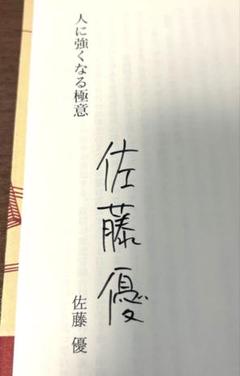 人に強くなる極意
佐藤優
佐藤 優